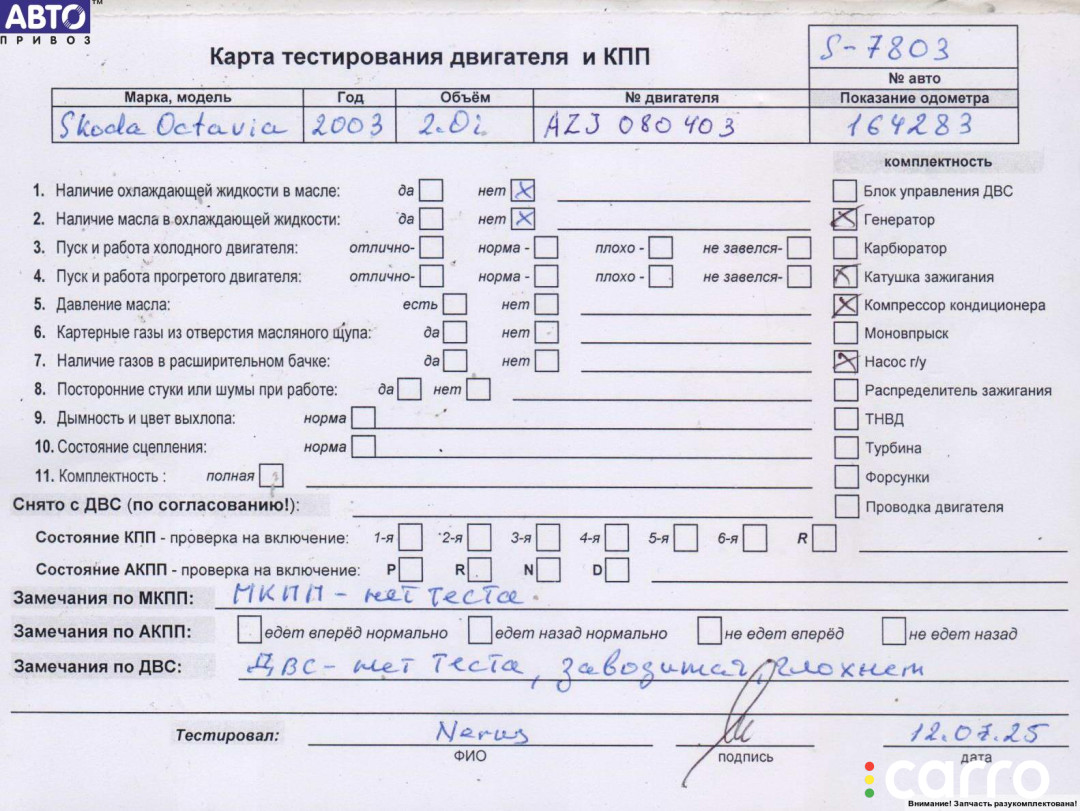 АВТО™
ПРИВОЗ
Карта тестирования двигателя и КПП
S-7803
№ авто
Марка, модель Год Объём № двигателя Показание одометра
Skoda Octavia 2003 2.0i AZJ 080403 164283
комплектность
1. Наличие охлаждающей жидкости в масле: да нет X
Блок управления ДВС
2. Наличие масла в охлаждающей жидкости: да нет X
X Генератор
3. Пуск и работа холодного двигателя: отлично- норма - плохо - не завелся-
Карбюратор
4. Пуск и работа прогретого двигателя: отлично- норма - плохо - не завелся-
X Катушка зажигания
5. Давление масла: есть нет
X Компрессор кондиционера
6. Картерные газы из отверстия масляного щупа: да нет
Моновпрыск
7. Наличие газов в расширительном бачке: да нет
X Насос г/у
8. Посторонние стуки или шумы при работе: да нет
Распределитель зажигания
9. Дымность и цвет выхлопа: норма
ТНВД
10. Состояние сцепления: норма
Турбина
11. Комплектность : полная
Форсунки
Снято с ДВС (по согласованию!):
Проводка двигателя
Состояние КПП - проверка на включение: 1-я 2-я 3-я 4-я 5-я 6-я R
Состояние АКПП - проверка на включение: P R N D
Замечания по МКПП: МКПП - нет теста
Замечания по АКПП: едет вперёд нормально едет назад нормально не едет вперёд не едет назад
Замечания по ДВС: ДВС - нет теста, заводится, глохнет
Тестировал: 12.07.25
ФИО подпись дата
carro
Внимание! Запчасть разукомплектована!